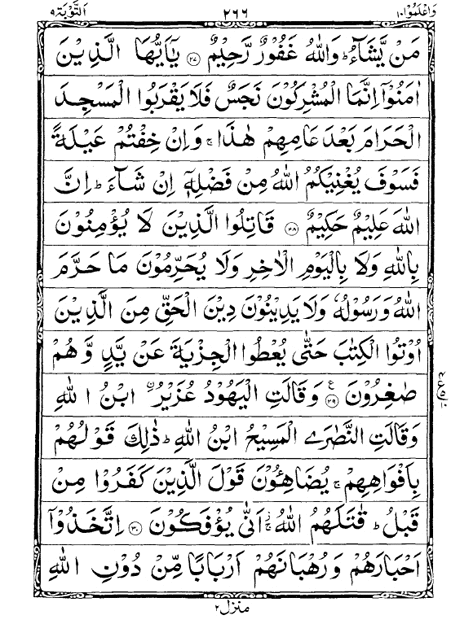 وَاعْلَمُوْۤا ١٠ ٢٦٦ اَلتَّوْبَة ٩
مَنْ يَّشَآءُ ؕ وَاللّٰهُ غَفُوْرٌ رَّحِيْمٌ ﴿٢٧﴾ يٰۤاَيُّهَا الَّذِيْنَ
اٰمَنُوْۤا اِنَّمَا الْمُشْرِكُوْنَ نَجَسٌ فَلَا يَقْرَبُوا الْمَسْجِدَ
الْحَرَامَ بَعْدَ عَامِهِمْ هٰذَا ۚ وَاِنْ خِفْتُمْ عَيْلَةً
فَسَوْفَ يُغْنِيْكُمُ اللّٰهُ مِنْ فَضْلِهٖۤ اِنْ شَآءَ ؕ اِنَّ
اللّٰهَ عَلِيْمٌ حَكِيْمٌ ﴿٢٨﴾ قَاتِلُوا الَّذِيْنَ لَا يُؤْمِنُوْنَ
بِاللّٰهِ وَلَا بِالْيَوْمِ الْاٰخِرِ وَلَا يُحَرِّمُوْنَ مَا حَرَّمَ
اللّٰهُ وَرَسُوْلُهٗ وَلَا يَدِيْنُوْنَ دِيْنَ الْحَقِّ مِنَ الَّذِيْنَ
اُوْتُوا الْكِتٰبَ حَتّٰى يُعْطُوا الْجِزْيَةَ عَنْ يَّدٍ وَّهُمْ
صٰغِرُوْنَ ﴿٢٩﴾ وَقَالَتِ الْيَهُوْدُ عُزَيْرُ ۨ ابْنُ اللّٰهِ
وَقَالَتِ النَّصٰرَى الْمَسِيْحُ ابْنُ اللّٰهِ ؕ ذٰلِكَ قَوْلُهُمْ
بِاَفْوَاهِهِمْ ۚ يُضَاهِـُٔوْنَ قَوْلَ الَّذِيْنَ كَفَرُوْا مِنْ
قَبْلُ ؕ قٰتَلَهُمُ اللّٰهُ ۚ اَنّٰى يُؤْفَكُوْنَ ﴿٣٠﴾ اِتَّخَذُوْۤا
اَحْبَارَهُمْ وَرُهْبَانَهُمْ اَرْبَابًا مِّنْ دُوْنِ اللّٰهِ
منزل ٢